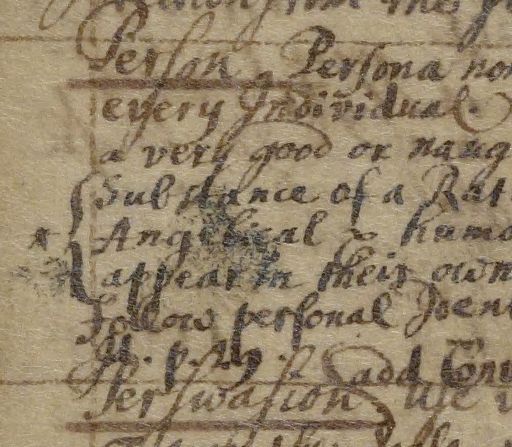 from the
Person, Persona non
every Individual.
a very good or naug
Substance of a Rat
x Angelical & huma
appear in their own
follow personal Iden
add Conv
Perswasion We